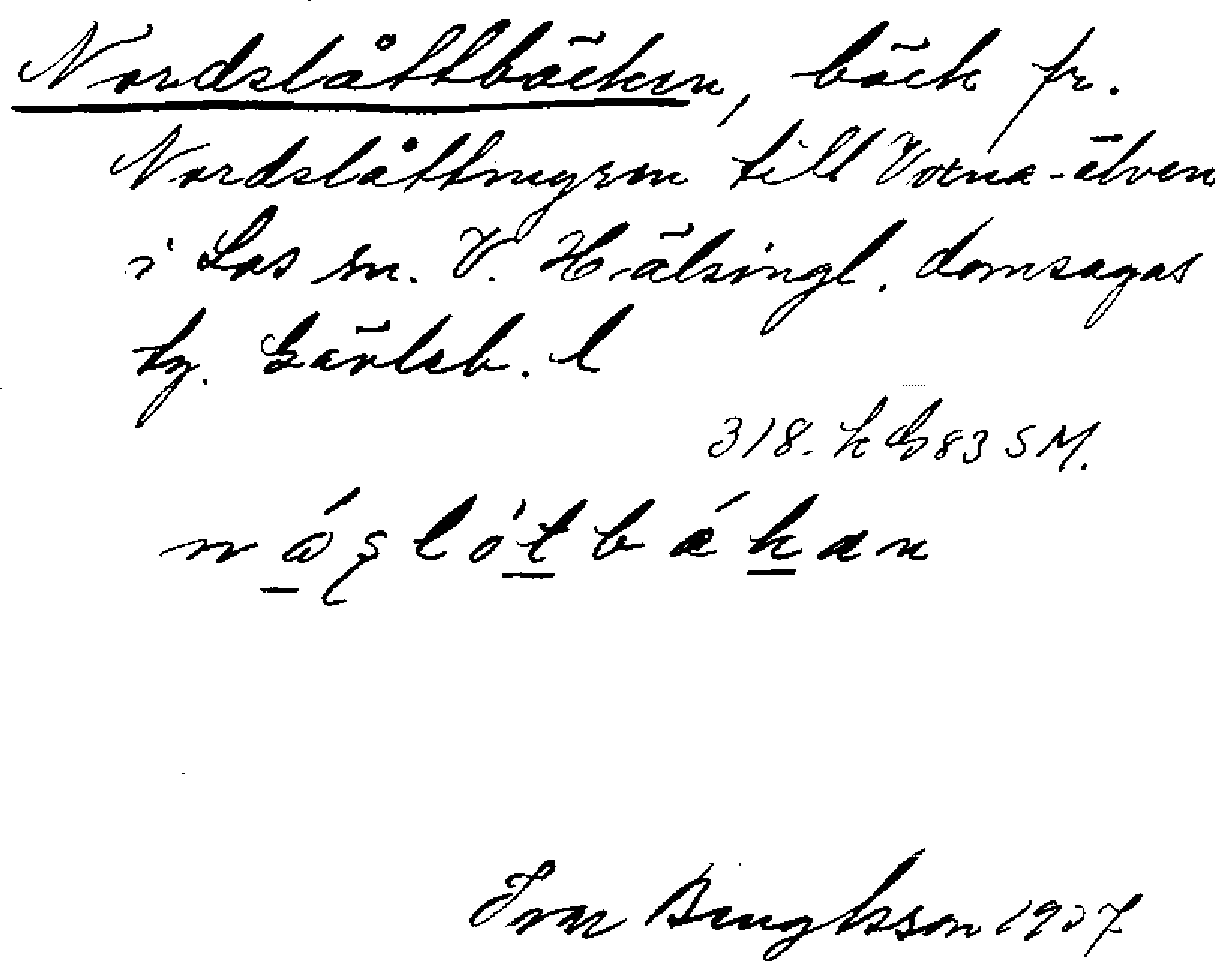 Nordslåttbäcken, bäck fr.
Nordslåttmyren till Voxna-älven
i Los sn. V. Hälsingl. domsagas
tg. Gävleb. l
318. h G83 SM.
Ivar Bengtsson 1937